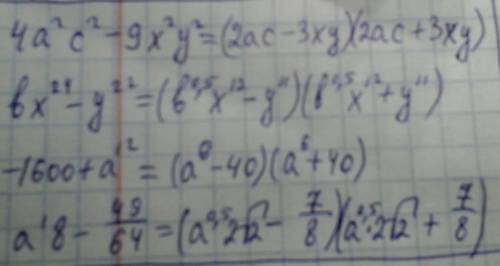 4a²c² - 9x²y² = (2ac - 3xy)(2ac + 3xy)
bx²⁴ - y²² = (b⁰,⁵x¹² - y¹¹)(b⁰,⁵x¹² + y¹¹)
-1600 + a¹² = (a⁶ - 40)(a⁶ + 40)
a¹8 - 49/64 = (a⁰,⁵2√2 - 7/8)(a⁰,⁵·2√2 + 7/8)